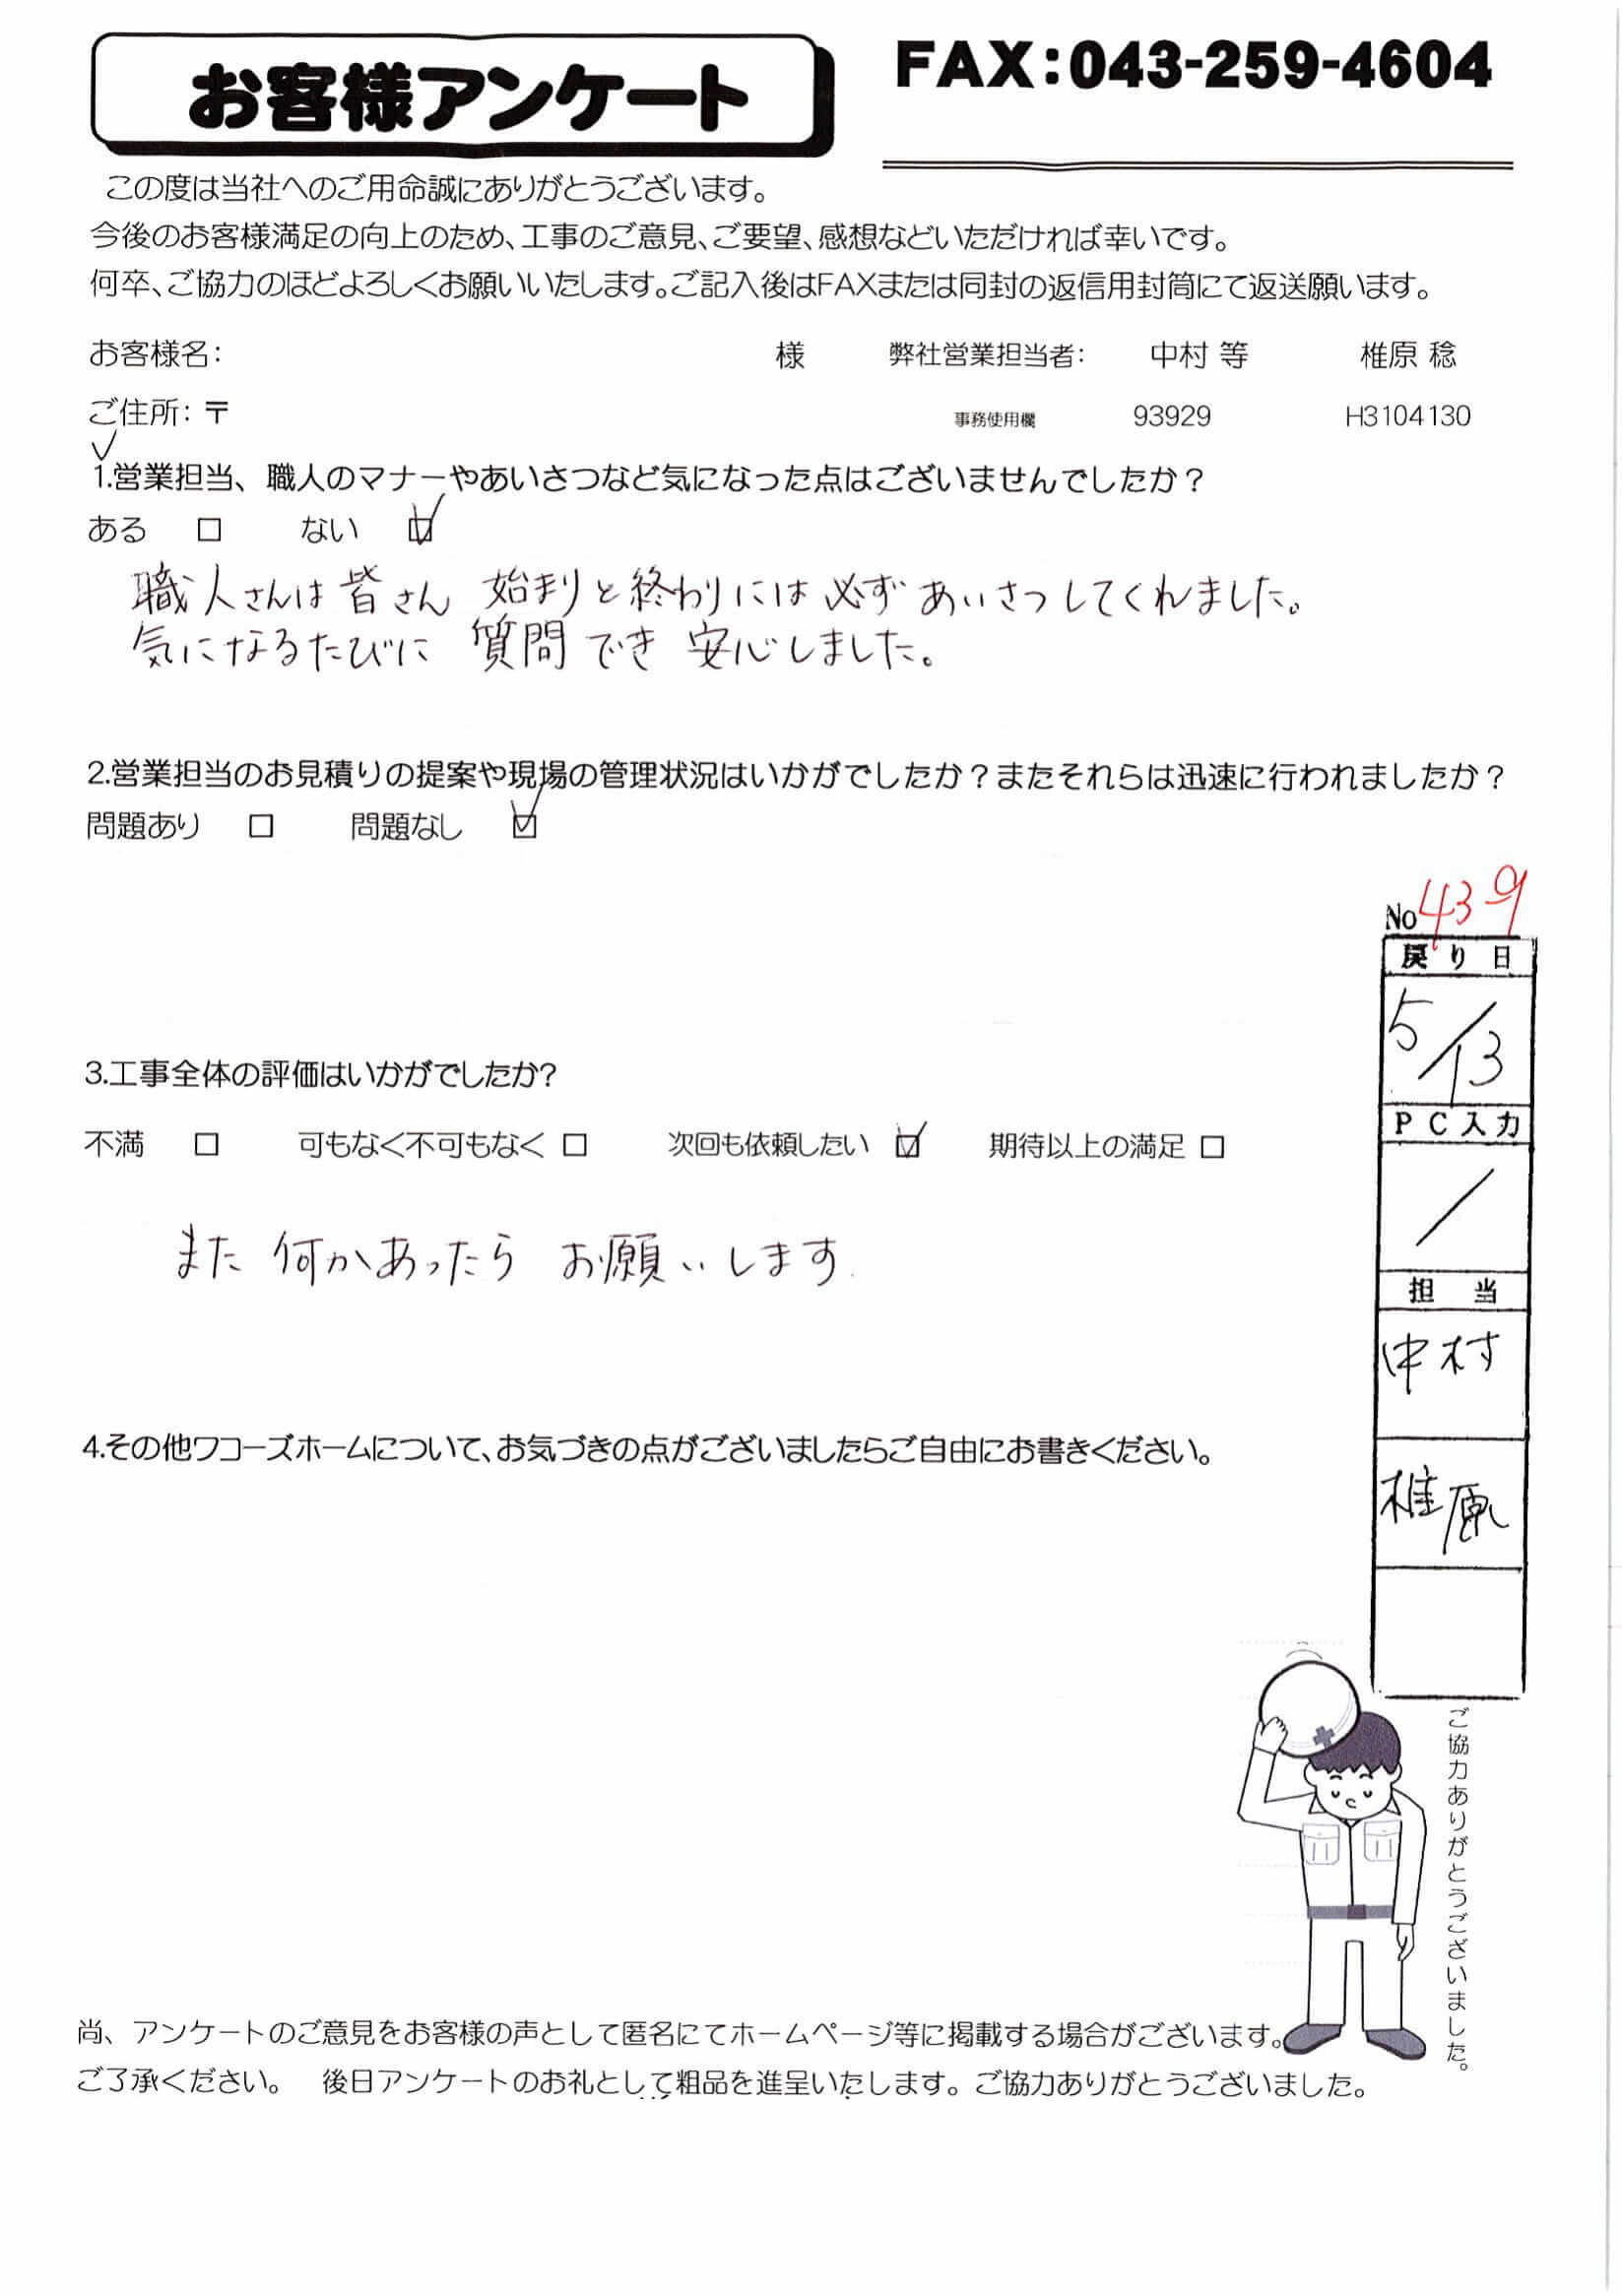 お客様アンケート
FAX:043-259-4604
この度は当社へのご用命誠にありがとうございます。
今後のお客様満足の向上のため、工事のご意見、ご要望、感想などいただければ幸いです。
何卒、ご協力のほどよろしくお願いいたします。ご記入後はFAXまたは同封の返信用封筒にて返送願います。
お客様名: 様 弊社営業担当者: 中村 等 椎原 稔
ご住所: 〒 事務使用欄 93929 H3104130
1.営業担当、職人のマナーやあいさつなど気になった点はございませんでしたか？
ある □ ない ☑
職人さんは皆さん 始まりと終わりには必ずあいさつしてくれました。
気になるたびに 質問でき 安心しました。
2.営業担当のお見積りの提案や現場の管理状況はいかがでしたか？またそれらは迅速に行われましたか？
問題あり □ 問題なし ☑
No 439
戻り日
5/13
PC入力
/
担当
中村
椎原
3.工事全体の評価はいかがでしたか?
不満 □ 可もなく不可もなく □ 次回も依頼したい ☑ 期待以上の満足 □
また 何かあったら お願いします
4.その他ワコーズホームについて、お気づきの点がございましたらご自由にお書きください。
ご協力ありがとうございました。
尚、アンケートのご意見をお客様の声として匿名にてホームページ等に掲載する場合がございます。
ご了承ください。 後日アンケートのお礼として粗品を進呈いたします。ご協力ありがとうございました。